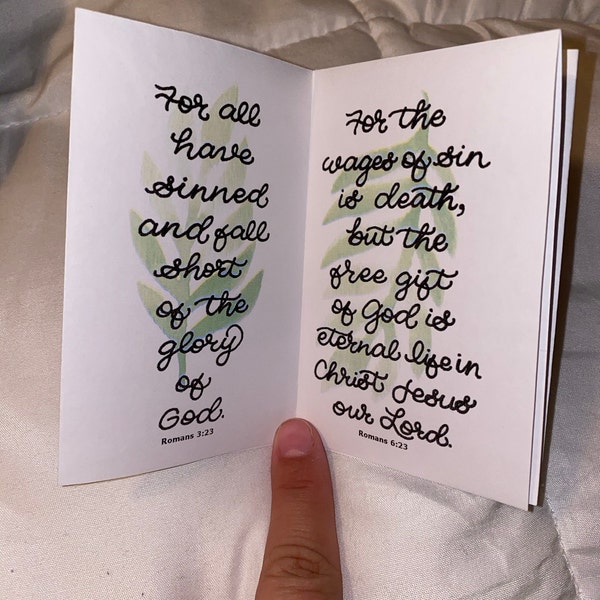 For all
have
sinned
and fall
short
of the
glory
of
God.
Romans 3:23
For the
wages of sin
is death,
but the
free gift
of God is
eternal life in
Christ Jesus
our Lord.
Romans 6:23